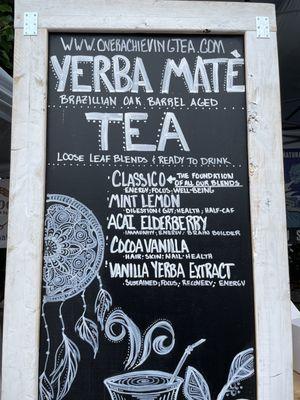 WWW.OVERACHIEVINGTEA.COM
YERBA MATÈ
BRAZILIAN OAK BARREL AGED
TEA
LOOSE LEAF BLENDS & READY TO DRINK
CLASSICO ← THE FOUNDATION
OF ALL OUR BLENDS
ENERGY, FOCUS, WELL-BEING
MINT LEMON
DIGESTION, GUT, HEALTH, HALF-CAF
ACAI ELDERBERRY
IMMUNITY, ENERGY, BRAIN BUILDER
COCOA VANILLA
HAIR, SKIN, NAIL HEALTH
VANILLA YERBA EXTRACT
SUSTAINED, FOCUS, RECOVERY, ENERGY